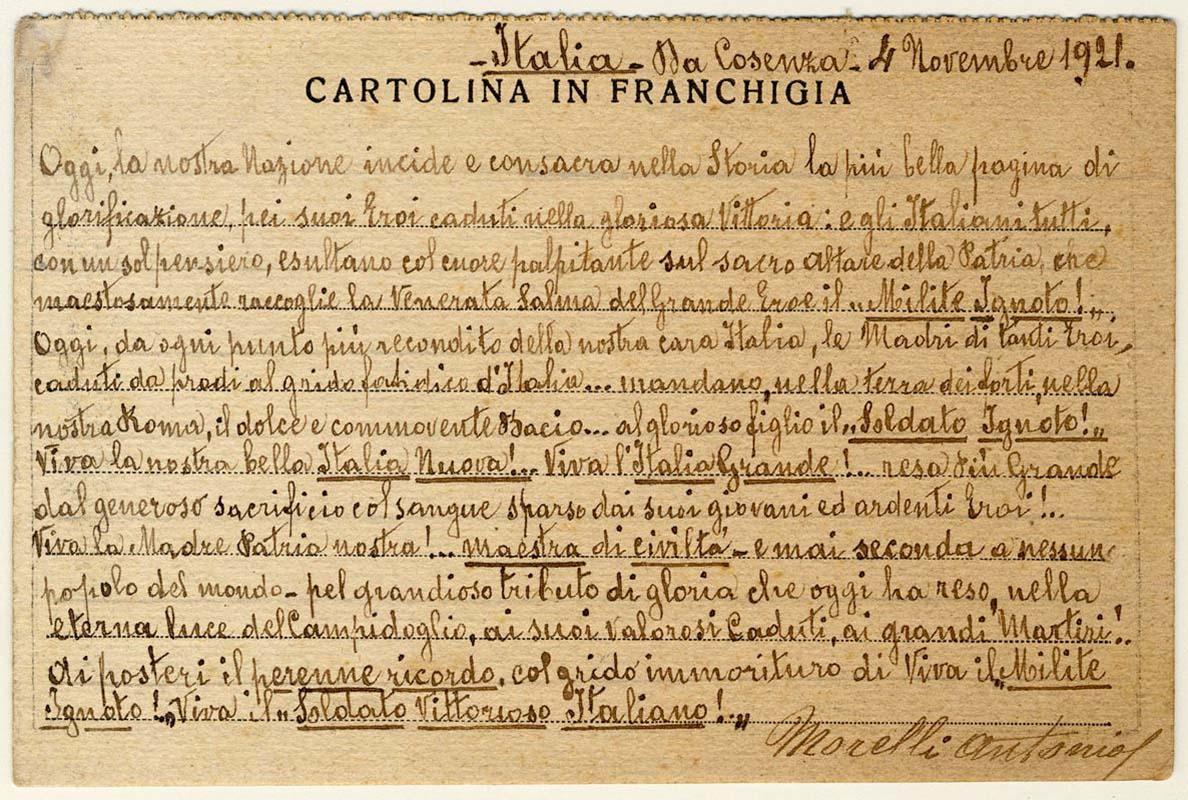 - Italia - Da Cosenza - 4 Novembre 1921.
CARTOLINA IN FRANCHIGIA
Oggi, la nostra Nazione incide e consacra nella Storia la più bella pagina di
glorificazione, pei suoi Eroi caduti nella gloriosa Vittoria: e gli Italiani tutti,
con un sol pensiero, esultano col cuore palpitante sul sacro altare della Patria, che
maestosamente raccoglie la Venerata Salma del Grande Eroe il „Milite Ignoto!„
Oggi, da ogni punto più recondito della nostra cara Italia, le Madri di tanti Eroi,
caduti da prodi al grido fatidico d'Italia... mandano, nella terra dei forti, nella
nostra Roma, il dolce e commovente Bacio... al glorioso figlio il „Soldato Ignoto!„
Viva la nostra bella Italia Nuova!.. Viva l'Italia Grande!... resa più Grande
dal generoso sacrificio col sangue sparso dai suoi giovani ed ardenti Eroi!..
Viva la Madre Patria nostra!... maestra di civiltà - e mai seconda a nessun
popolo del mondo - pel grandioso tributo di gloria che oggi ha reso, nella
eterna luce del Campidoglio, ai suoi valorosi Caduti, ai grandi Martiri!..
Ai posteri il perenne ricordo, col grido immorituro di Viva il „Milite
Ignoto!„ Viva il „Soldato Vittorioso Italiano!„
Morelli Antonio